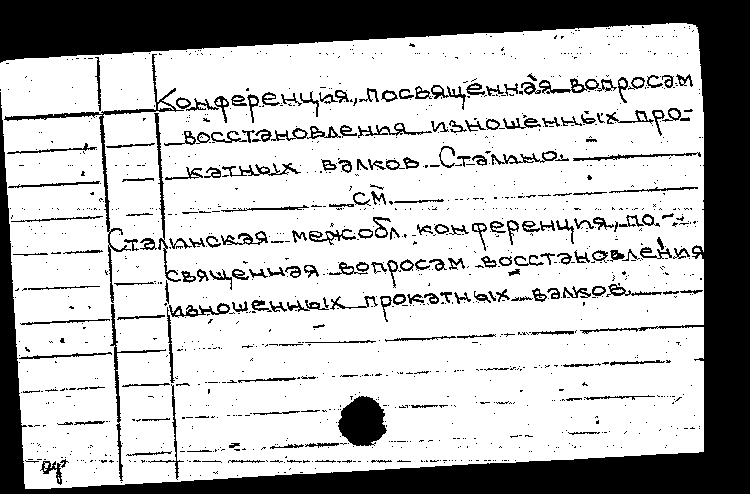 Конференция, посвященная вопросам
восстановления изношенных про-
катных валков. Сталино.
см.
Сталинская межобл. конференция, по-
священная вопросам восстановления
изношенных прокатных валков.